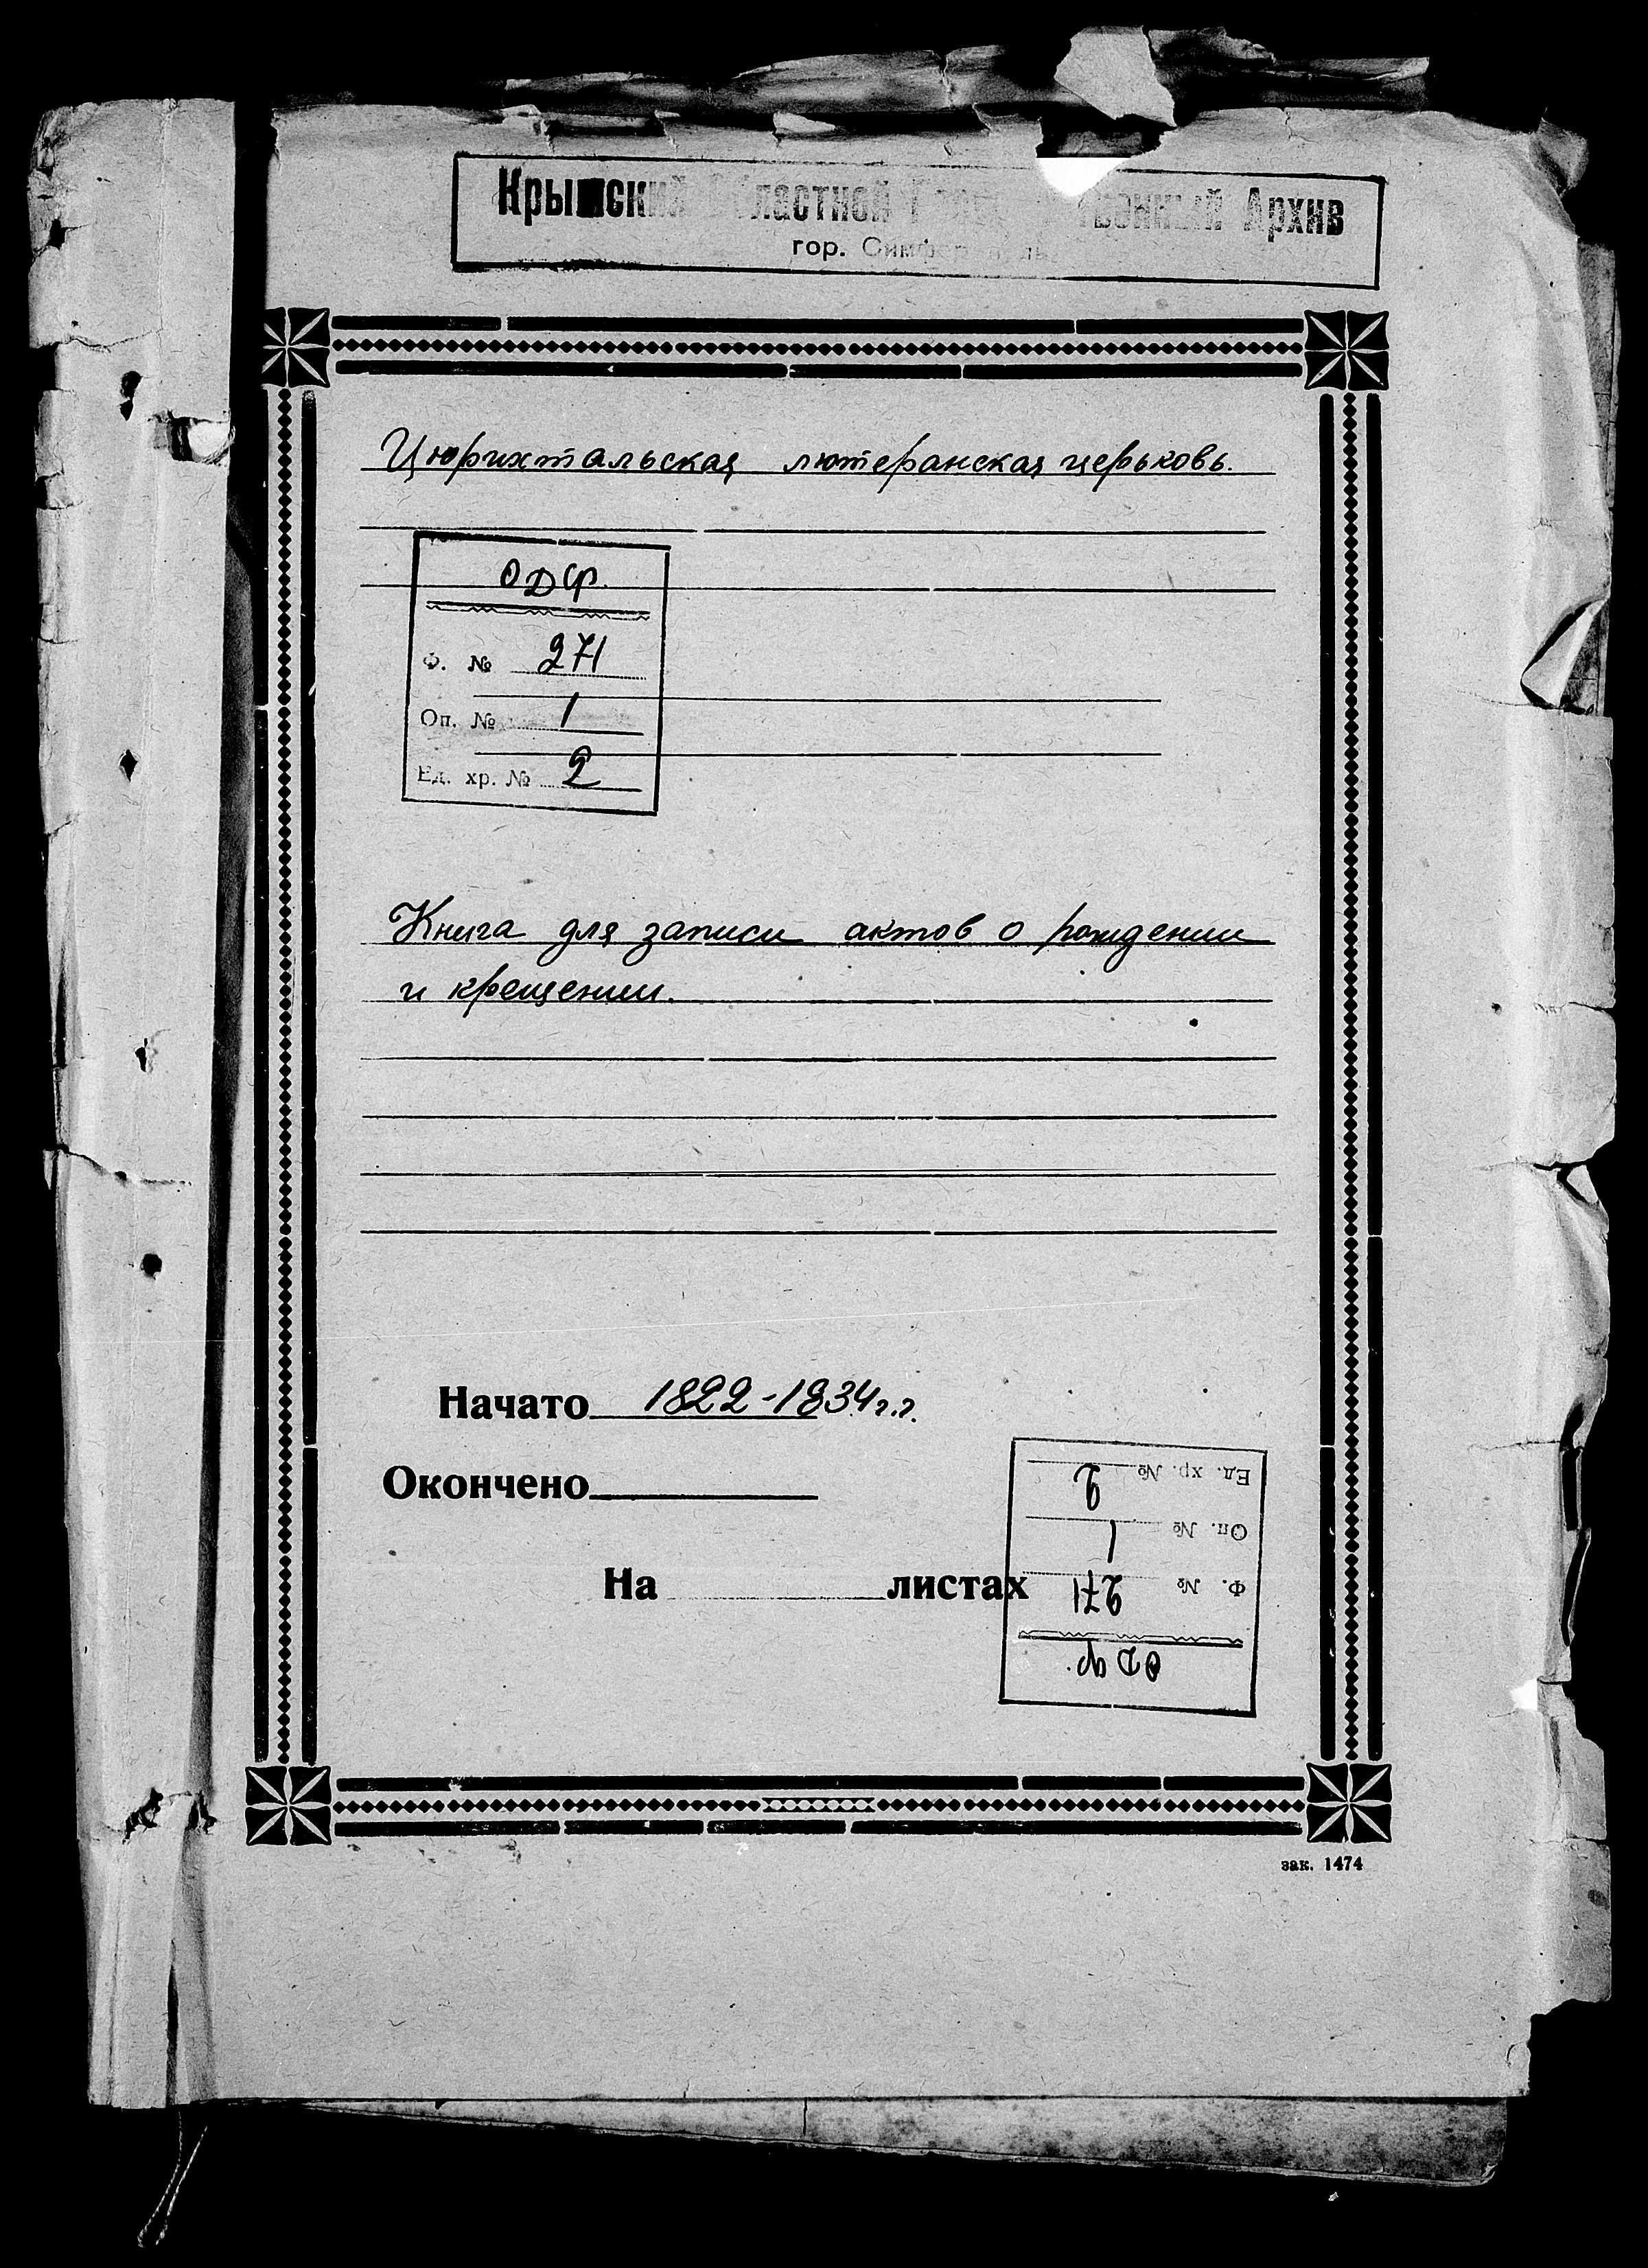 Крымский Областной Государственный Архив
гор. Симферополь
Цюрихтальская лютеранская церьковь.
ОДФ.
Ф. № 271
Оп. № 1
Ед. хр. № 2
Книга для записи актов о рождении
и крещении.
Начато 1822-1834 г.г.
Окончено
На листах
Ед. хр. № 2
Оп. № 1
Ф. № 271
ОДФ.
зак. 1474